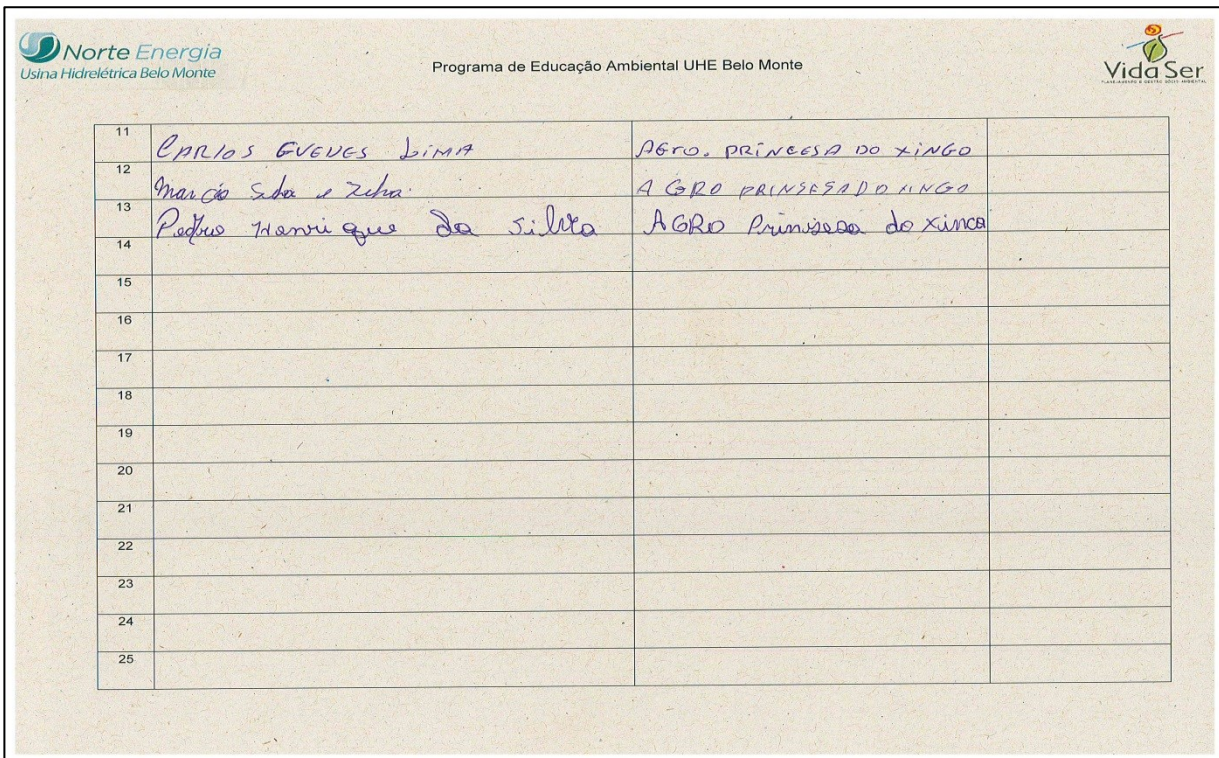 Norte Energia
Usina Hidrelétrica Belo Monte
Programa de Educação Ambiental UHE Belo Monte
Vida Ser
PLANEJAMENTO E GESTÃO SÓCIO-AMBIENTAL
11 CARLOS GUEDES LIMA AGrO. PRINCESA DO XINGO
12 Marcio e AGRO PRINSESA DO XINGO
13 Pedro Henrique Da Silva AGRO Prinsesa do Xinca
14
15
16
17
18
19
20
21
22
23
24
25